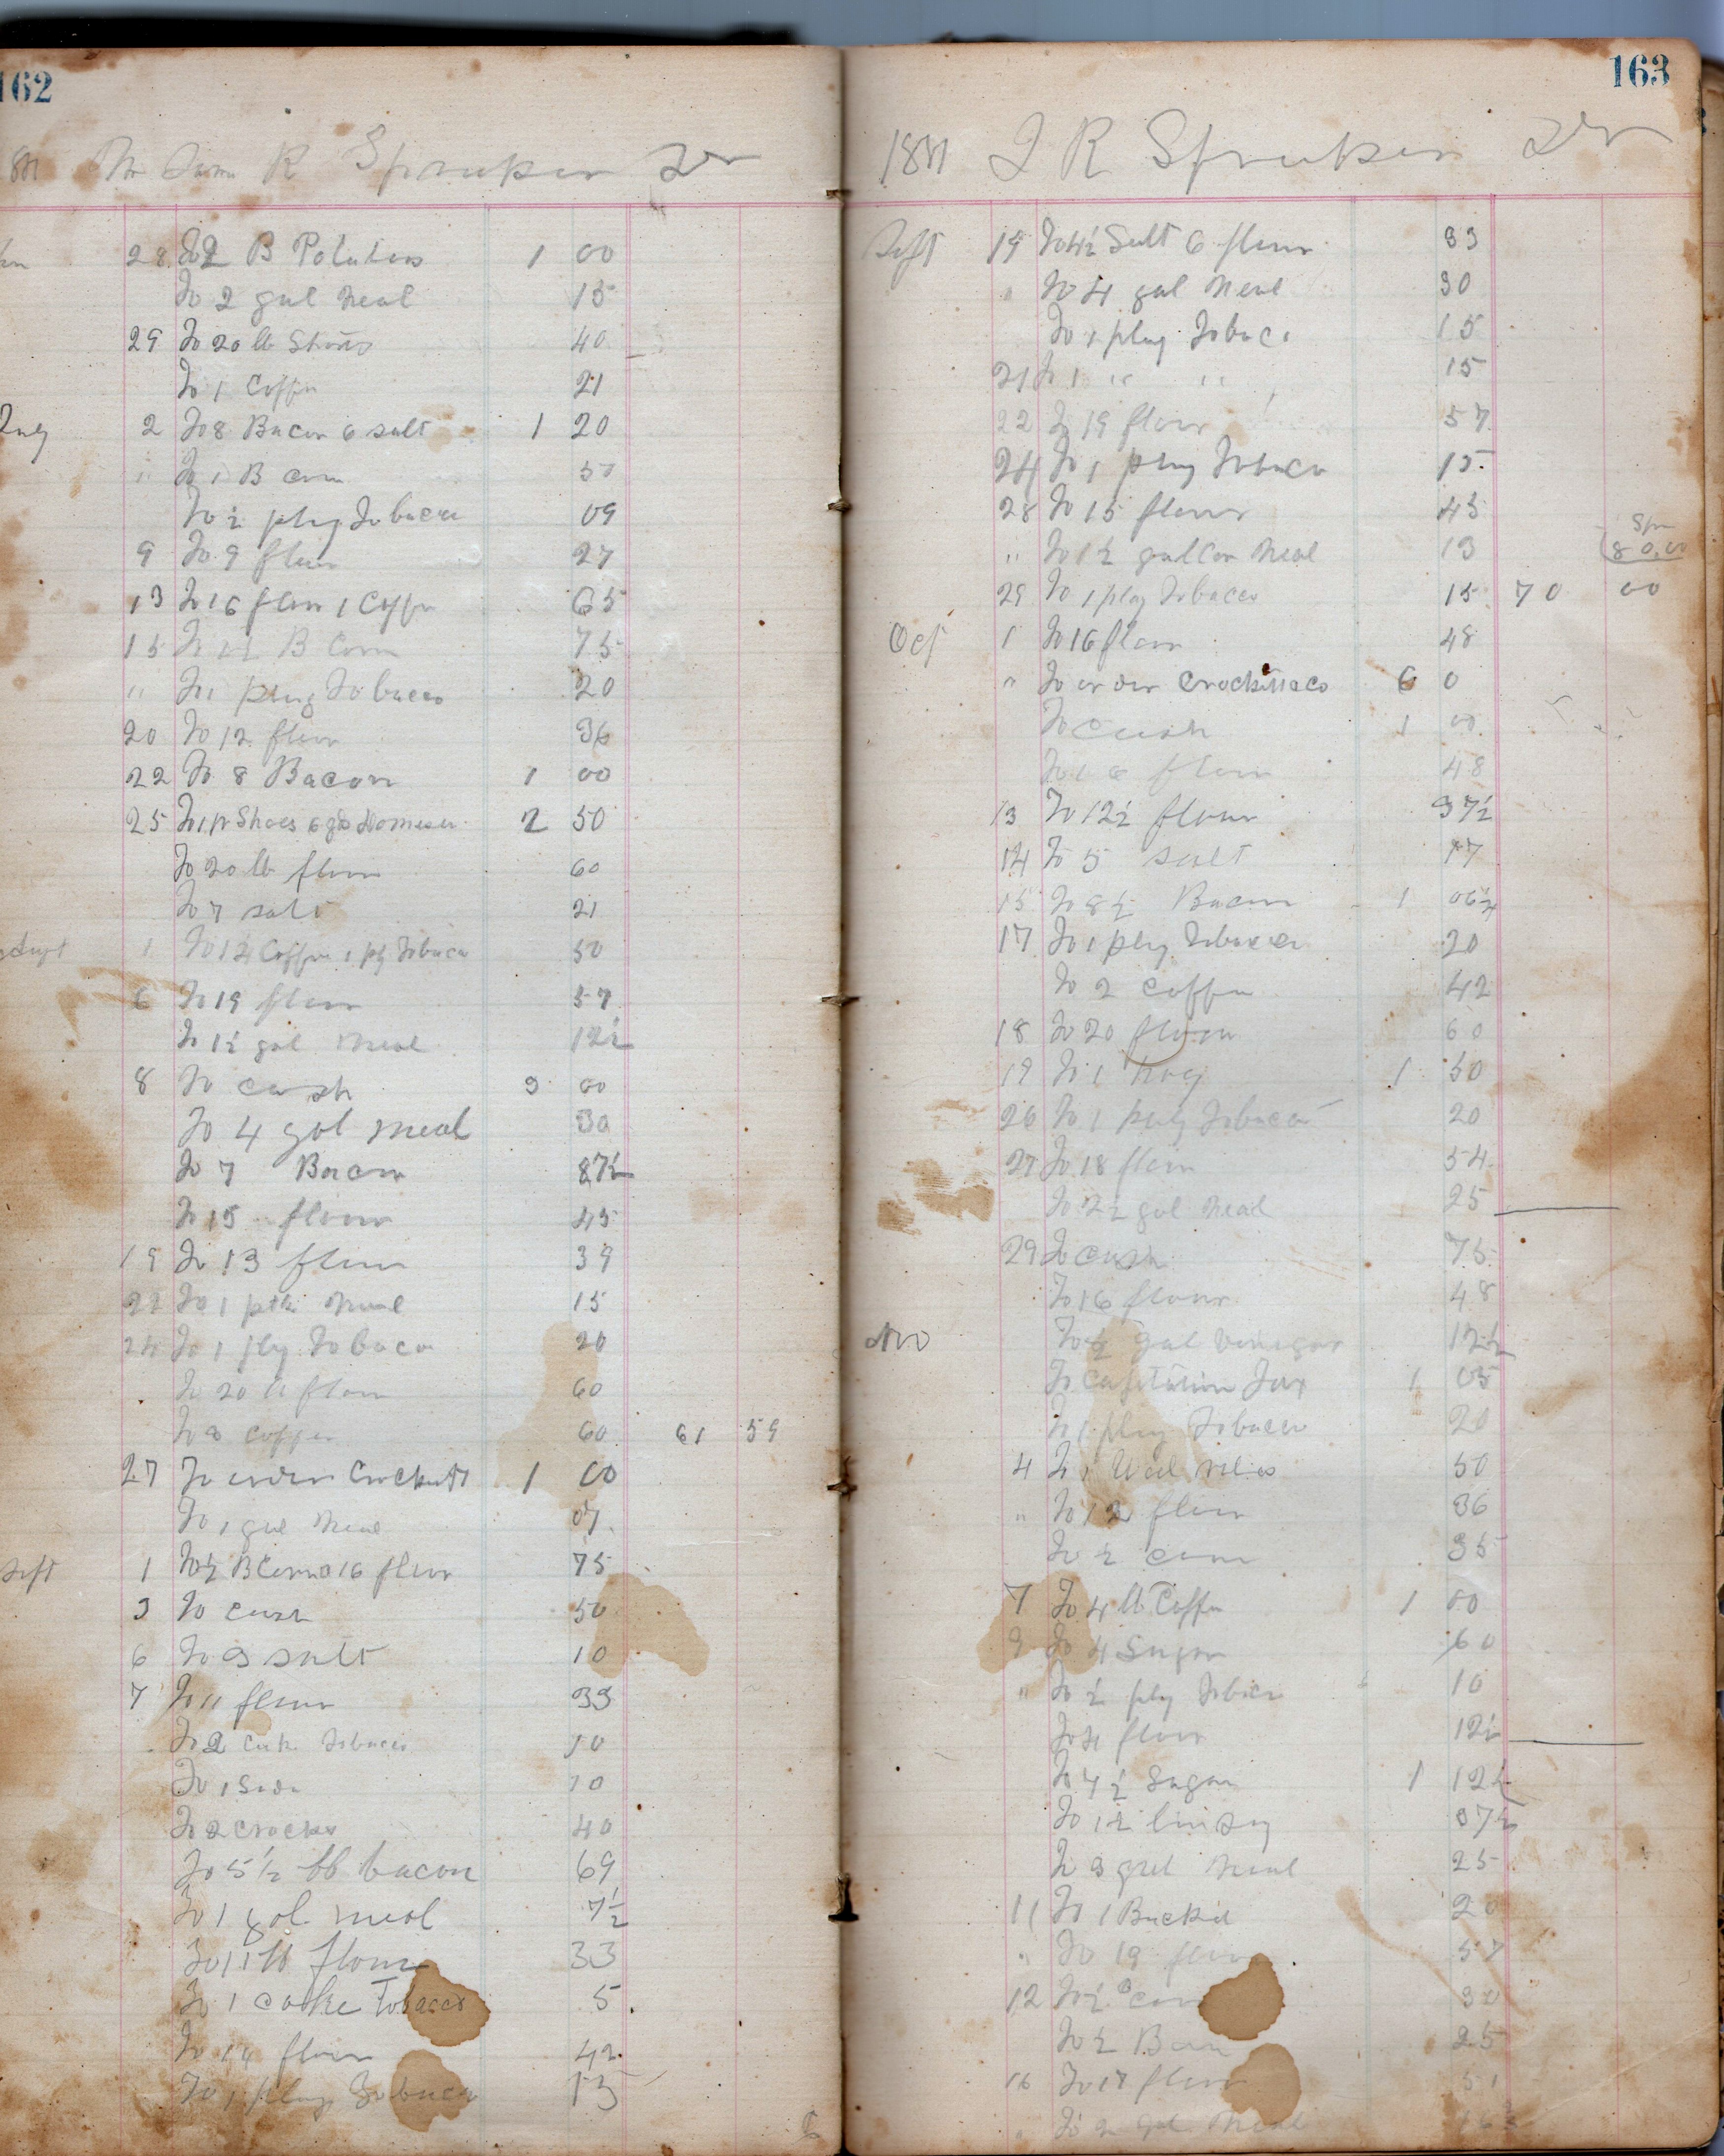 162
R Spruker Dr
28 To 2 B Potatoes 1 00
To 2 gal Meal 15
29 To 20 lb Shorts 40
To 1 Coffee 21
2 To 8 Bacon 6 salt 1 20
" To 1 B Corn 50
To ½ plug Tobacco 09
9 To 9 flour 27
13 To 16 flour 1 Coffee 65
15 To 1½ B Corn 75
" To 1 plug Tobacco 20
20 To 12 flour 36
22 To 8 Bacon 1 00
25 To 1 pr Shoes 6 yd Domestic 2 50
To 20 lb flour 60
To 7 salt 21
1 To 1¼ Coffee 1 plg Tobaco 50
6 To 19 flour 57
To 1½ gal Meal 12½
8 To Cash 3 00
To 4 gal Meal 30
To 7 Bacon 87½
To 15 flour 45
19 To 13 flour 39
To 1 Meal 15
24 To 1 plg Tobaco 20
To 20 lb flour 60
To 3 Coffee 60 61 59
27 To order Crockett 1 00
To 1 gal Meal 07
Sept 1 To ½ B Corn 16 flour 75
3 To Cash 50
6 To 3 salt 10
7 To 11 flour 33
To 2 Cake Tobacco 10
To 1 Soda 10
To 2 Crocks 40
To 5½ lb bacon 69
To 1 gal meal 7½
To 11 lb flour 33
To 1 cake Tobacco 5
To 14 flour 42
To 1 plug Tobacco 15
163
1881 J R Spruker Dr
Sept 19 Salt 6 flour 33
" To 4 gal Meal 30
To 1 plug Tobaco 15
21 To 1 " " 15
22 To 19 flour 57
24 To 1 plug Tobaco 15
28 To 15 flour 45
" To 1½ gallon Meal 13
80.00
29 To 1 plug Tobacco 15 70 00
Oct 1 To 16 flour 48
" To order Crockett & Co 6 0
To Cash 1 00
To 16 flour 48
13 To 12½ flour 37½
14 To 5 salt 17
15 To 8½ Bacon 1 06¼
17 To 1 plug Tobacco 20
To 2 Coffee 42
18 To 20 flour 60
19 To 1 hog 1 50
26 To 1 plug Tobacco 20
27 To 18 flour 54
To 2½ gal Meal 25
29 To Cash 75
To 16 flour 48
Nov To ½ gal Vinegar 12½
To Capitation Tax 1 05
To 1 plug Tobacco 20
4 To 1 50
" To 12 flour 36
To ½ corn 35
7 To 4 lb Coffee 1 00
9 To 4 Sugar 60
" To ½ plg Tobaco 10
To 4 flour 12½
To 4½ Sugar 1 12½
To 1½ linsey 37½
To 3 gal Meal 25
11 To 1 Bucket 20
" To 19 flour 57
12 To ½ B Corn 30
To ½ 25
16 To 17 flour 51
" To 2 gal Meal